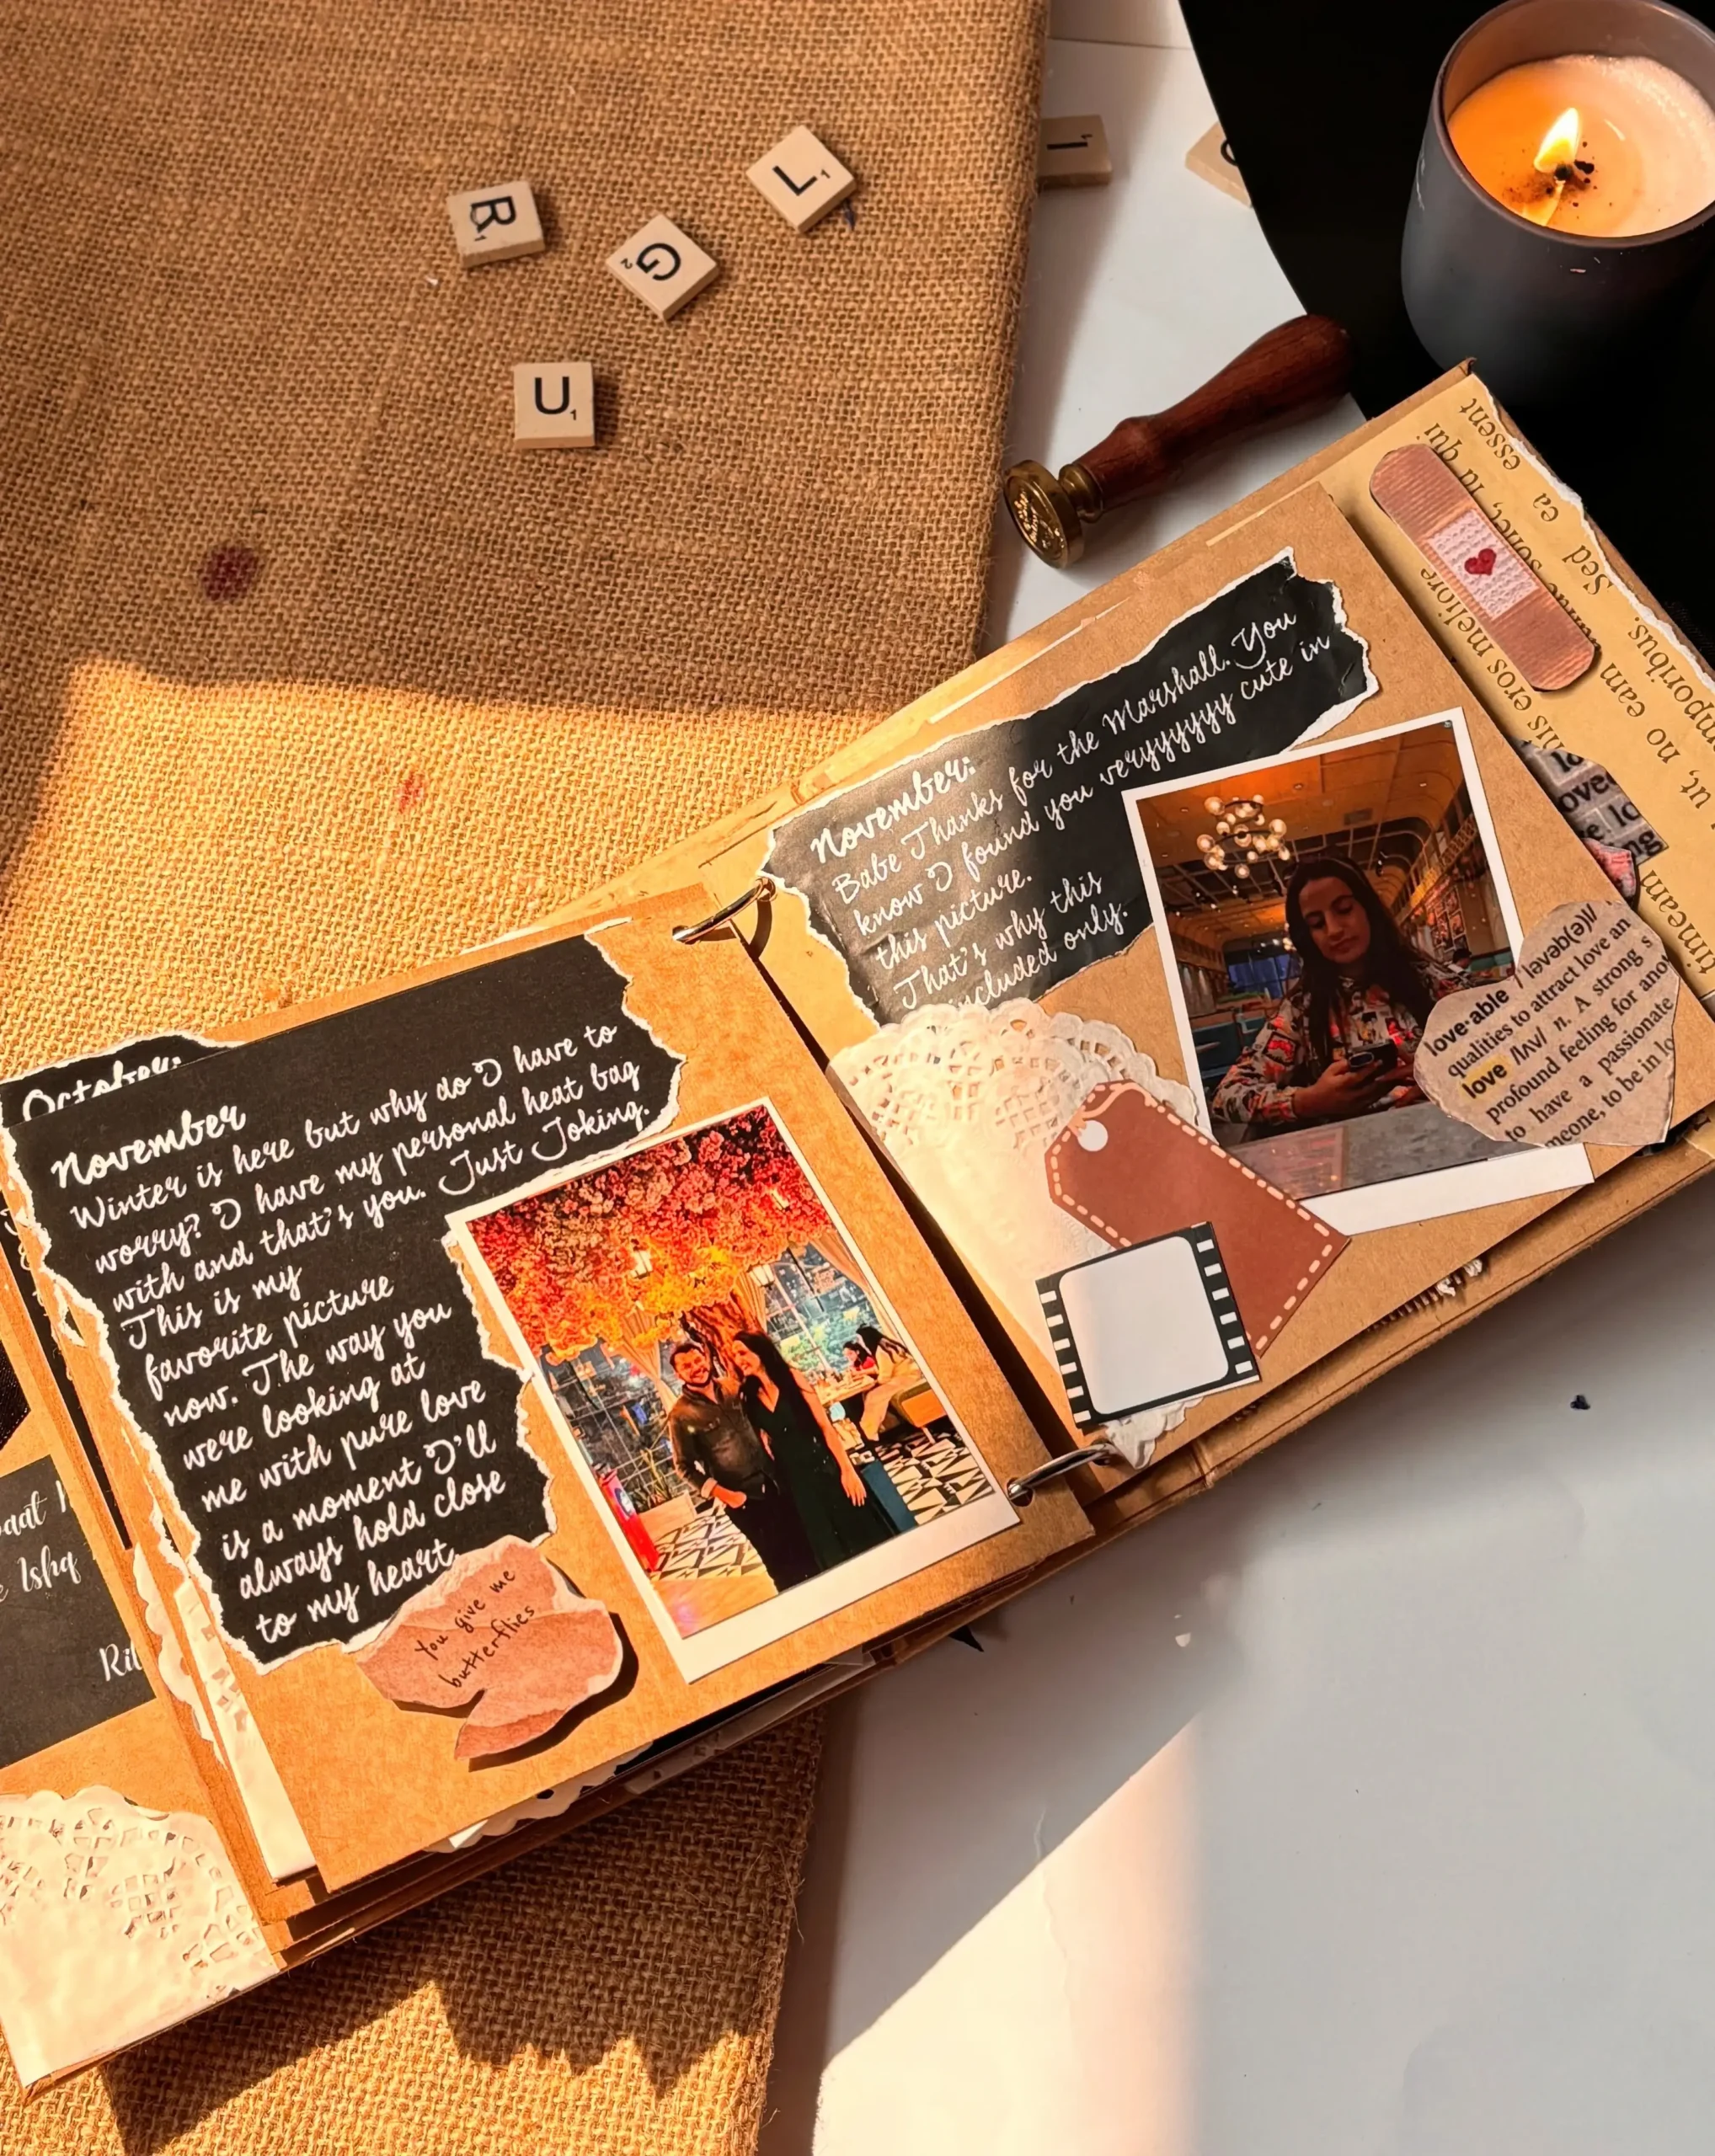 R1
G2
L1
I1
U1
October:
November
Winter is here but why do I have to
worry? I have my personal heat bag
with and that's you. Just Joking.
This is my
favorite picture
now. The way you
were looking at
me with pure love
is a moment I'll
always hold close
to my heart.
You give me
butterflies
Ishq
November:
Babe Thanks for the Marshall. You
know I found you veryyyyyy cute in
this picture.
That's why this
included only.
love·able /lʌvəb(ə)l/
qualities to attract love an
love /lʌv/ n. A strong s
profound feeling for ano
to have a passionate
meone, to be in lo
essent
qui
ea
Sed
his eros meliore
no eam
ut,